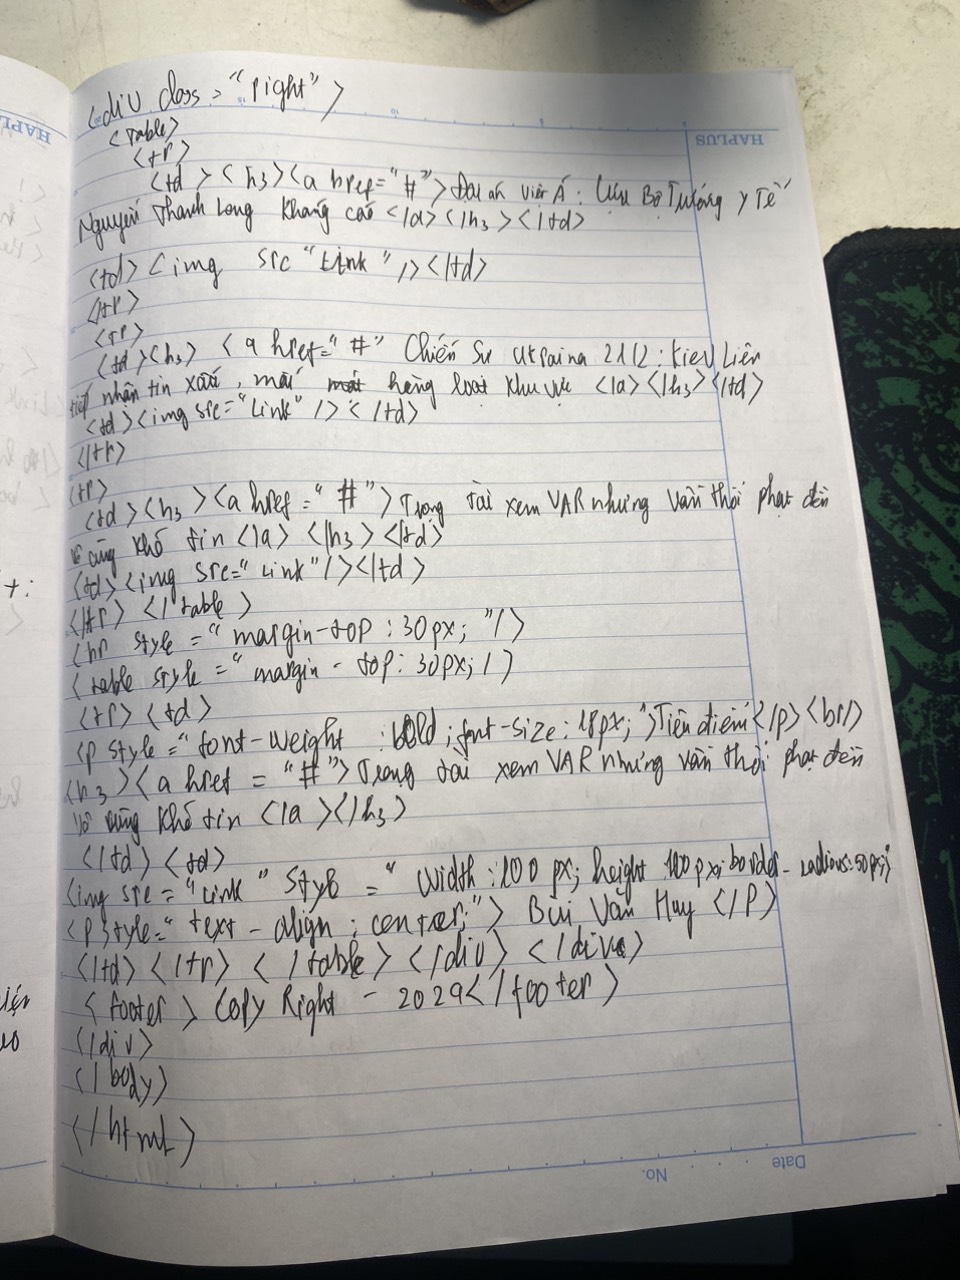 <div class = "right">
<table>
<tr>
<td> <h3><a href="#"> Đại án Việt Á: Cựu Bộ Trưởng y Tế
Nguyễn Thanh Long kháng cáo </a></h3></td>
<td> <img src "Link" /></td>
</tr>
<tr>
<td><h3> <a href="#" Chiến Sự Utraina 21/2: Kiev Liên
tiếp nhận tin xấu, mất hàng loạt khu vực </a></h3></td>
<td><img src="Link" /> </td>
</tr>
<tr>
<td><h3><a href="#"> Trọng tài xem VAR nhưng vẫn thổi phạt đền
vô cùng khó tin </a> </h3> </td>
<td><img src="Link"/></td>
</tr> </table>
<hr style ="margin-top : 30px; "/>
<table style ="margin - top: 30px; /)
<tr> <td>
<p style ="font-weight : bold ; font-size : 18px;">Tiêu điểm</p><br/>
<h3><a href = "#"> Trọng tài xem VAR nhưng vẫn thổi phạt đền
Vô cùng khó tin </a></h3>
</td> <td>
<img src="Link" Style = "width : 100 px; height 100 px; border - radius: 50px;
<p style="text - align : center;"> Bùi Văn Huy </p>
</td> </tr> </table> </div> </div>
<footer> Copy Right - 2024</footer>
</div>
</body>
</html>
HAPLUS
No.
Date